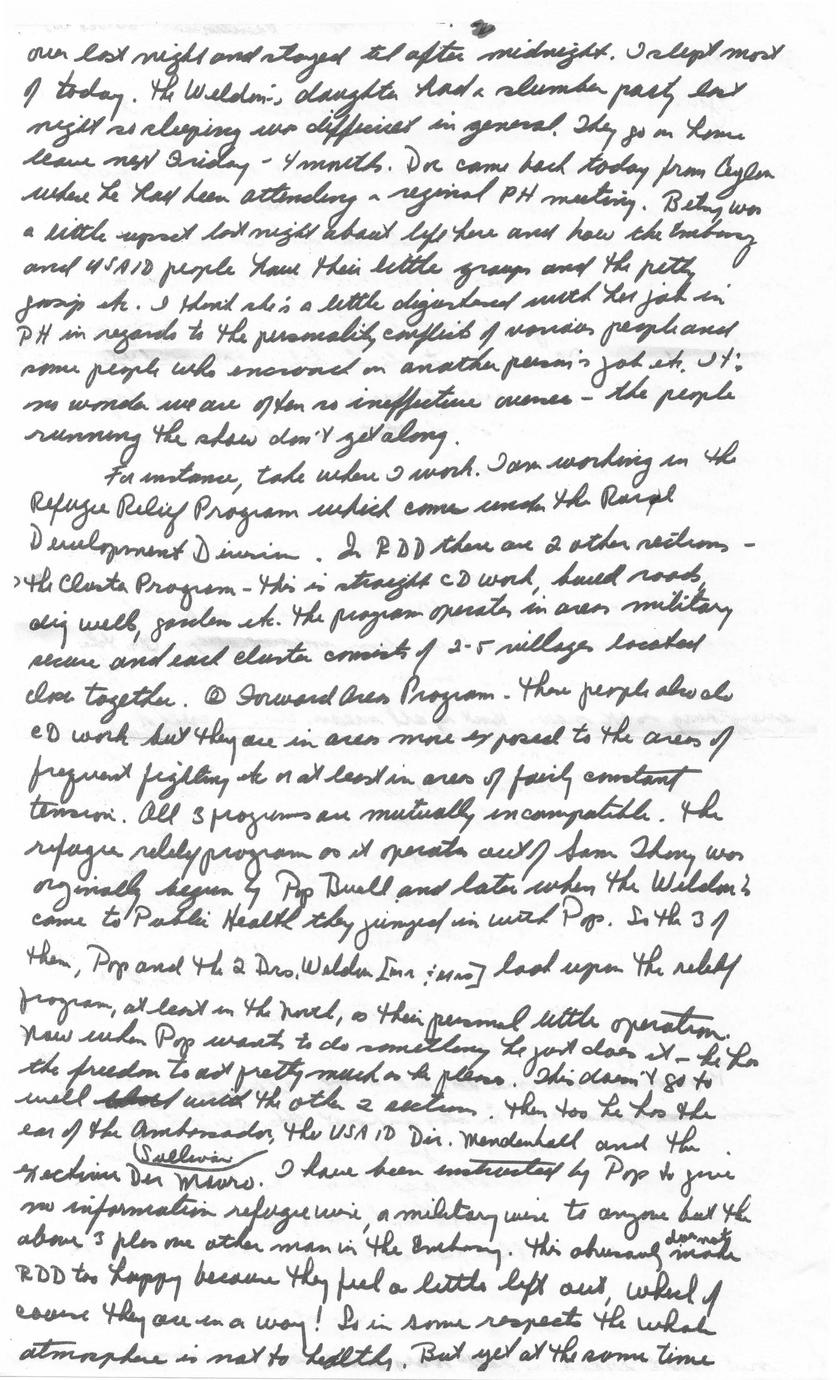 over last night and stayed til after midnight. I slept most
of today. The Weldon's daughter had a slumber party last
night so sleeping was difficult in general. They go on home
leave next Friday - 4 months. Doc came back today from Ceylon
where he had been attending a reginal PH meeting. Betsy was
a little upset last night about life here and how the Embassy
and USAID people have their little groups and the petty
gossip etc. I think she's a little disgusted with her job in
PH in regards to the personality conflicts of various people and
some people who encroach on another person's job etc. It's
no wonder we are often so ineffective overseas - the people
running the show don't get along.
For instance, take where I work. I am working in the
Refugee Relief Program which comes under the Rural
Development Division. In RDD there are 2 other sections -
the Cluster Program - this is straight CD work, build roads,
dig wells, gardens etc. The program operates in areas military
secure and each cluster consists of 2-5 villages located
close together. ② Forward Area Program - These people also do
CD work but they are in areas more exposed to the areas of
frequent fighting etc or at least in areas of fairly constant
tension. All 3 programs are mutually incompatible. The
refugee relief program as it operates out of Sam Thong was
orginally begun by Pop Buell and later when the Weldon's
came to Public Health they jumped in with Pop. So the 3 of
them, Pop and the 2 Drs. Weldon [mr & mrs] look upon the relief
program, at least in the north, as their personal little operation.
Now when Pop wants to do something he just does it - he has
the freedom to act pretty much as he please. This doesn't go to
well with the other 2 sections. Then too he has the
ear of the Ambassador, the USAID Dir. Mendenhall and the
(Sullivan)
exective Dir Mauro. I have been instructed by Pop to give
no information refugee wise, or military wise to anyone but the
above 3 plus one other man in the Embassy. This obviously does not make
RDD too happy because they feel a little left out, which of
course they are in a way! So in some respects the whole
atmosphere is not to healthy. But yet at the same time